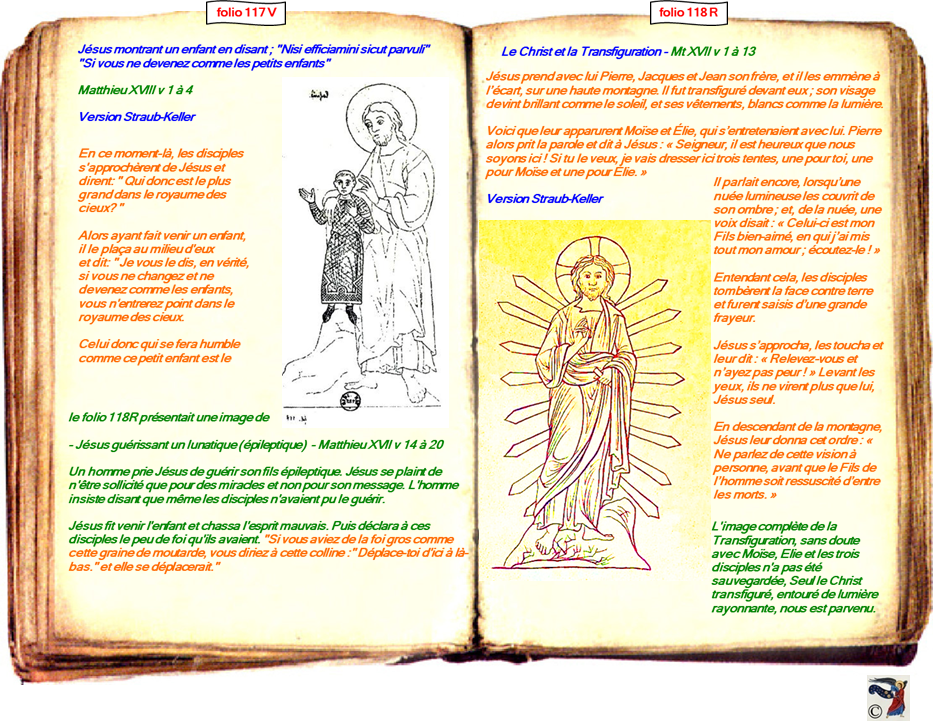 folio 117 V
Jésus montrant un enfant en disant ; "Nisi efficiamini sicut parvuli"
"Si vous ne devenez comme les petits enfants"
Matthieu XVIII v 1 à 4
Version Straub-Keller
En ce moment-là, les disciples
s'approchèrent de Jésus et
dirent: " Qui donc est le plus
grand dans le royaume des
cieux? "
Alors ayant fait venir un enfant,
il le plaça au milieu d'eux
et dit: "Je vous le dis, en vérité,
si vous ne changez et ne
devenez comme les enfants,
vous n'entrerez point dans le
royaume des cieux.
Celui donc qui se fera humble
comme ce petit enfant est le
le folio 118R présentait une image de
- Jésus guérissant un lunatique (épileptique) - Matthieu XVII v 14 à 20
Un homme prie Jésus de guérir son fils épileptique. Jésus se plaint de
n'être sollicité que pour des miracles et non pour son message. L'homme
insiste disant que même les disciples n'avaient pu le guérir.
Jésus fit venir l'enfant et chassa l'esprit mauvais. Puis déclara à ces
disciples le peu de foi qu'ils avaient. "Si vous aviez de la foi gros comme
cette graine de moutarde, vous diriez à cette colline :" Déplace-toi d'ici à là-
bas." et elle se déplacerait."
folio 118 R
Le Christ et la Transfiguration - Mt XVII v 1 à 13
Jésus prend avec lui Pierre, Jacques et Jean son frère, et il les emmène à
l'écart, sur une haute montagne. Il fut transfiguré devant eux ; son visage
devint brillant comme le soleil, et ses vêtements, blancs comme la lumière.
Voici que leur apparurent Moïse et Élie, qui s'entretenaient avec lui. Pierre
alors prit la parole et dit à Jésus : « Seigneur, il est heureux que nous
soyons ici ! Si tu le veux, je vais dresser ici trois tentes, une pour toi, une
pour Moïse et une pour Élie. »
Version Straub-Keller
Il parlait encore, lorsqu'une
nuée lumineuse les couvrit de
son ombre ; et, de la nuée, une
voix disait : « Celui-ci est mon
Fils bien-aimé, en qui j'ai mis
tout mon amour ; écoutez-le ! »
Entendant cela, les disciples
tombèrent la face contre terre
et furent saisis d'une grande
frayeur.
Jésus s'approcha, les toucha et
leur dit : « Relevez-vous et
n'ayez pas peur ! » Levant les
yeux, ils ne virent plus que lui,
Jésus seul.
En descendant de la montagne,
Jésus leur donna cet ordre : «
Ne parlez de cette vision à
personne, avant que le Fils de
l'homme soit ressuscité d'entre
les morts. »
L'image complète de la
Transfiguration, sans doute
avec Moïse, Elie et les trois
disciples n'a pas été
sauvegardée, Seul le Christ
transfiguré, entouré de lumière
rayonnante, nous est parvenu.
©